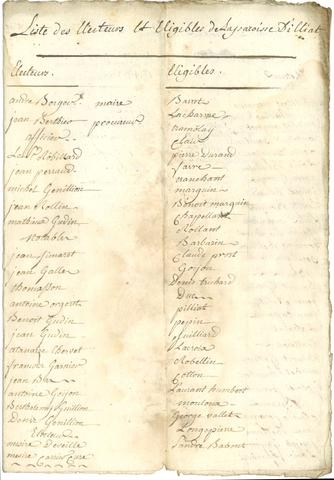 Liste des Electeurs Et Eligibles de la paroisse Dilliat
Electeurs.
andré maire
jean Berthier procureur
officiers
Le Sr Robillard
jean perraud
michel Genillion
jean Rollin
mathieux Gudin
Notables
jean fimaret
jean Gallet
thomasson
antoine
Benoit Gudin
jean Gudin
athanaze Chervet
francois Garnier
jean Duc
antoine Gojon
Berthelemy Guillion
Denis Genillion
Electeurs
mesire Deveille
mesire curé
Eligibles.
Barrot
Lacharme
tramblay
Claux
pierre Durand
faivre
tranchant
marguin
Benoit marguin
Chapelland
Rollant
Barbarin
Claude prost
Gojon
Denis trichard
Duc
pilliat
pepin
Guilliard
Lacroix
Robellin
Cotton
Laurant humbert
montoux
George vallet
Longepierre
Sandre Babout